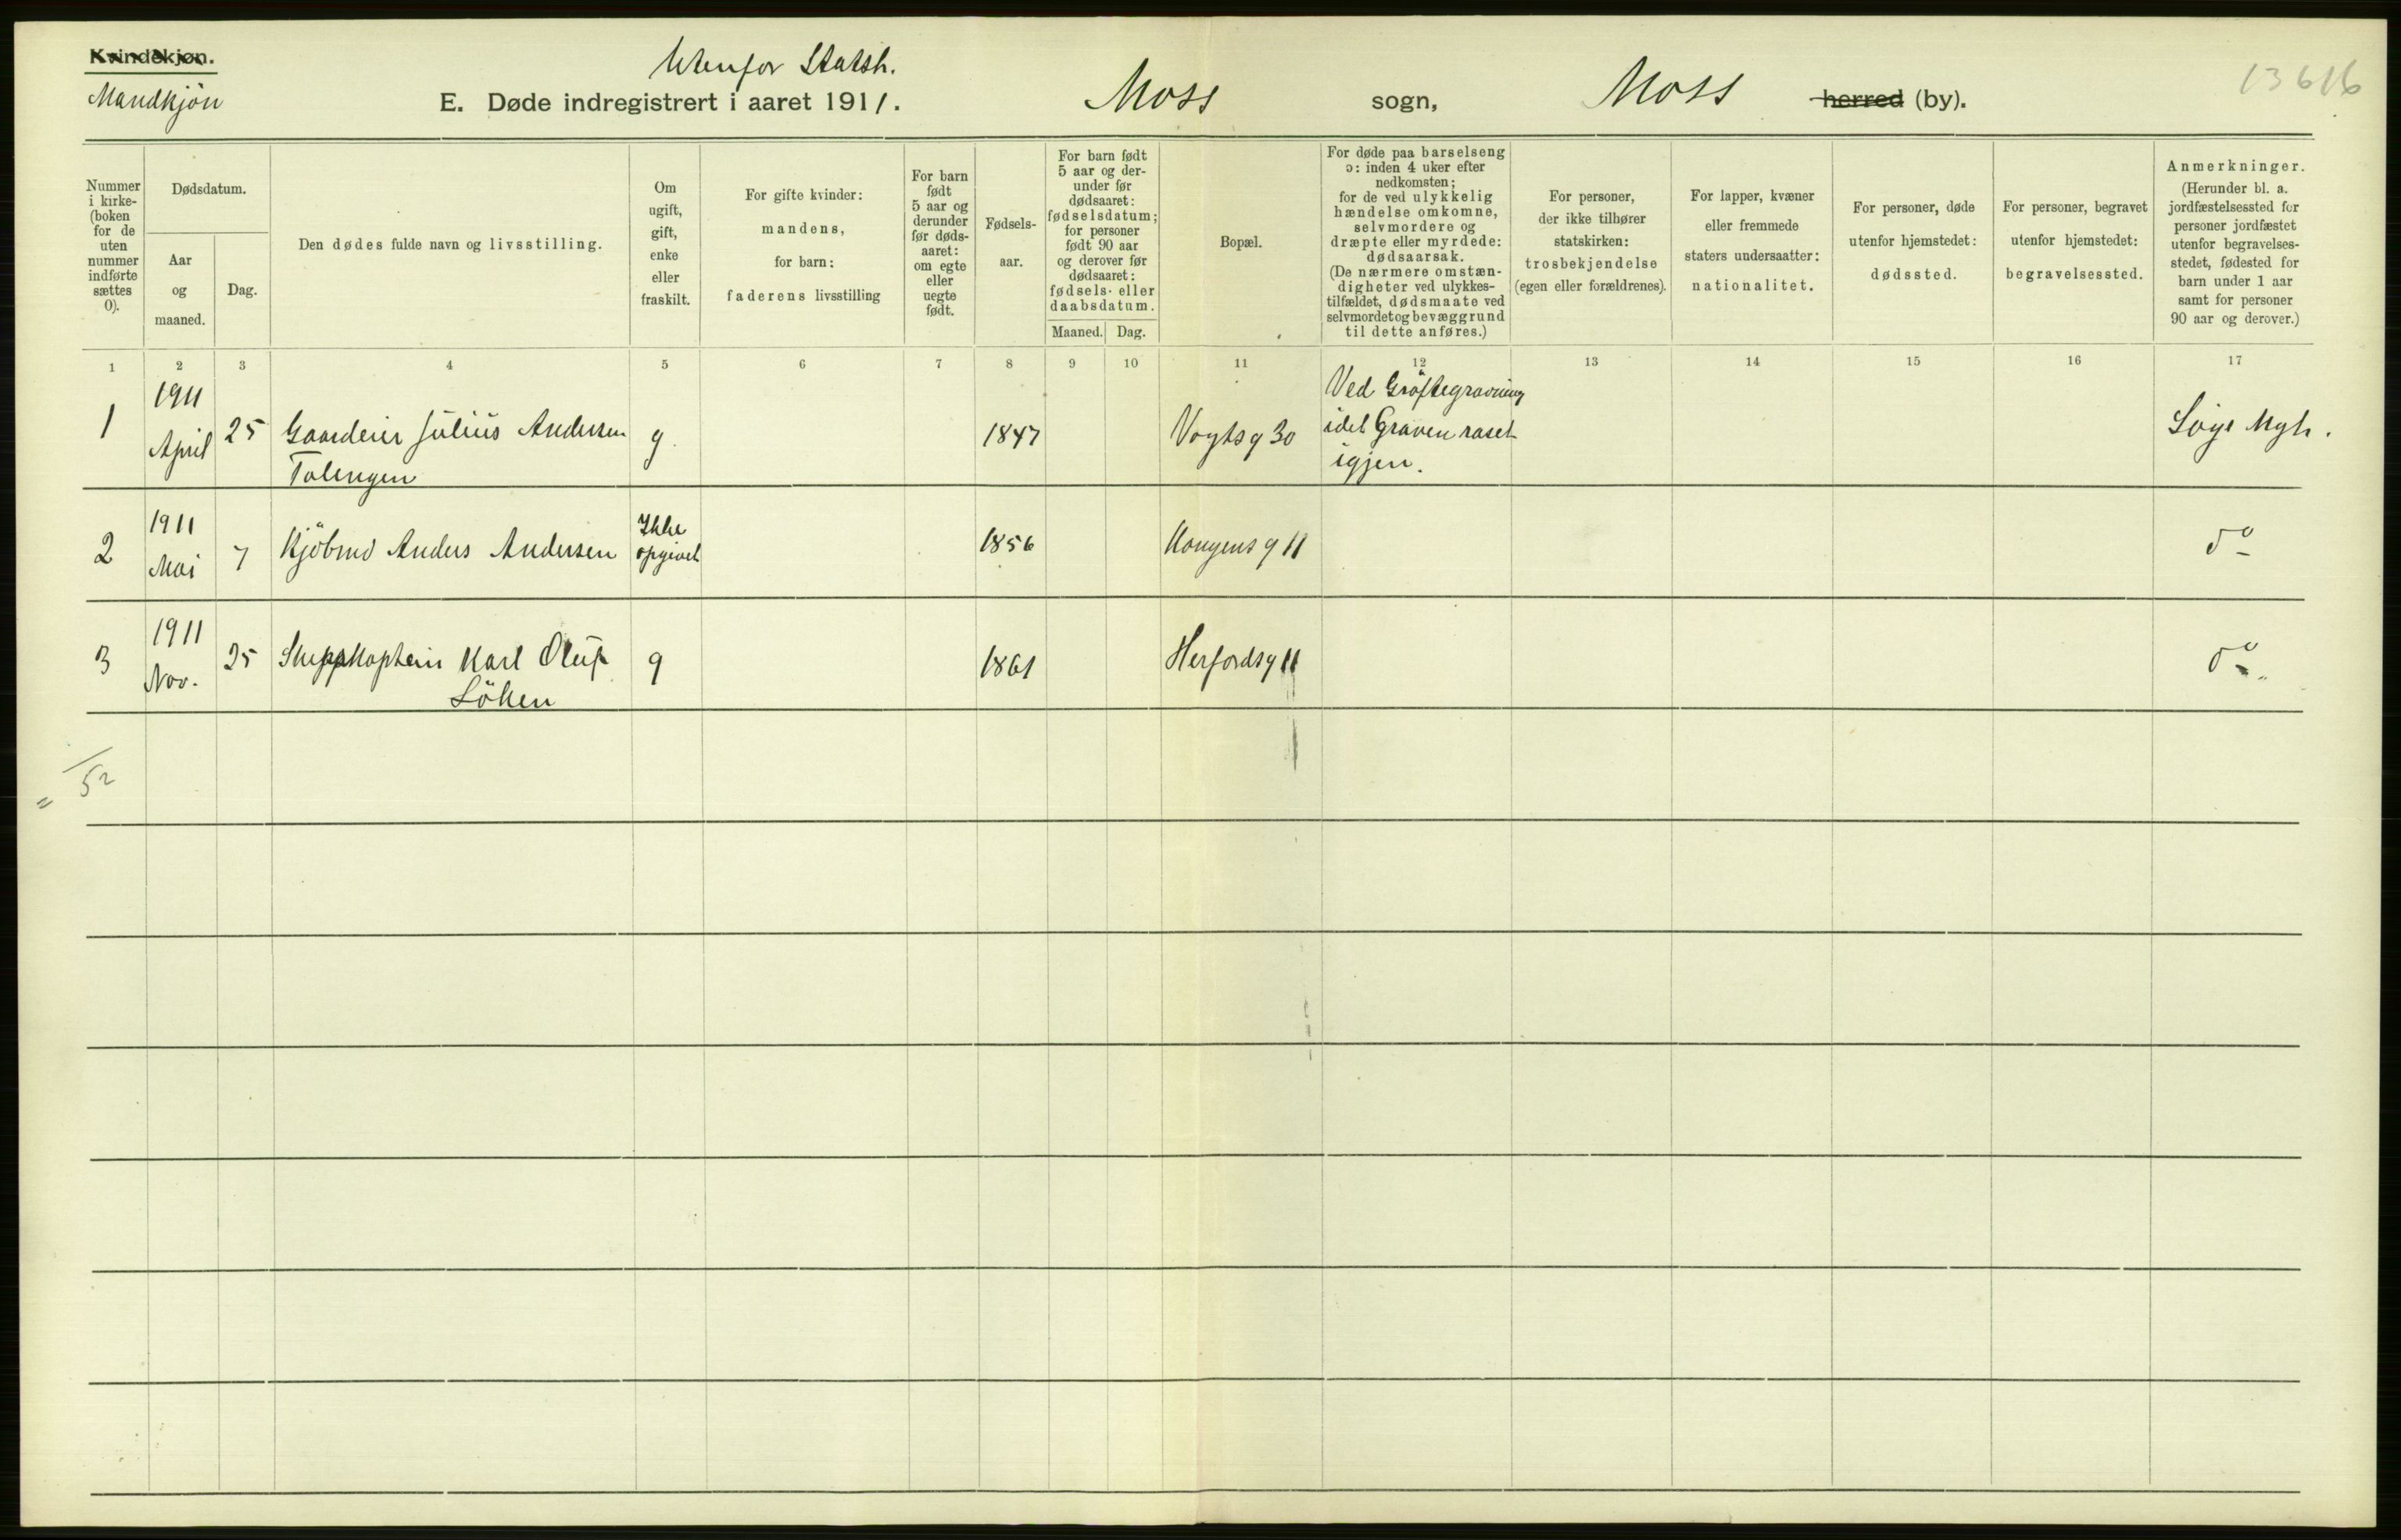 Kvindekjøn.
Mandkjön
Utenfor Statsk.
E. Døde indregistrert i aaret 1911.
Moss sogn,
Moss herred (by).
13616
Nummer i kirke-(boken for de uten nummer indførte sættes 0).
Dødsdatum.
Aar og maaned.
Dag.
Den dødes fulde navn og livsstilling.
Om ugift, gift, enke eller fraskilt.
For gifte kvinder: mandens, for barn: faderens livsstilling
For barn født 5 aar og derunder før døds-aaret: om egte eller uegte født.
Fødsels-aar.
For barn født 5 aar og der-under før dødsaaret: fødselsdatum; for personer født 90 aar og derover før dødsaaret: fødsels- eller daabsdatum.
Maaned. Dag.
Bopæl.
For døde paa barselseng ɔ: inden 4 uker efter nedkomsten; for de ved ulykkelig hændelse omkomne, selvmordere og dræpte eller myrdede: dødsaarsak. (De nærmere omstæn-digheter ved ulykkes-tilfældet, dødsmaate ved selvmordet og bevæggrund til dette anføres.)
For personer, der ikke tilhører statskirken: trosbekjendelse (egen eller forældrenes).
For lapper, kvæner eller fremmede staters undersaatter: nationalitet.
For personer, døde utenfor hjemstedet: dødssted.
For personer, begravet utenfor hjemstedet: begravelsessted.
Anmerkninger. (Herunder bl. a. jordfæstelsessted for personer jordfæstet utenfor begravelses-stedet, fødested for barn under 1 aar samt for personer 90 aar og derover.)
1 2 3 4 5 6 7 8 9 10 11 12 13 14 15 16 17
1 1911 April 25 Gaardeier Julius Andersen g. 1847 Vogtsg 30 Ved Gröftegravning idet Graven raset igjen.
2 1911 Mai 7 Kjöbmd Anders Andersen Ikke opgivet 1856 Kongens g 11 do
3 1911 Nov. 25 Skipskaptein Karl Oluf Löken g 1861 Herfordsg 11 do
= 52